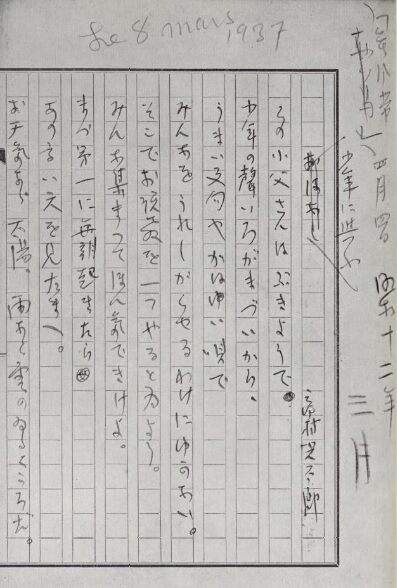 le 8 mars 1937
四月号 昭和十二年 三月
少年に與ふ
高村光太郎
この小父さんはぶきようで
少年の聲いろがまづいから、
うまい文句やかはゆい唄で
みんなをうれしがらせるわけにゆかない。
そこでお説教を一つやると為よう。
みんな集まつてほん気できけよ。
まづ第一に毎朝起きたら
あの高い天を見たまへ。
お天気なら太陽、雨なら雲のゐるところだ。